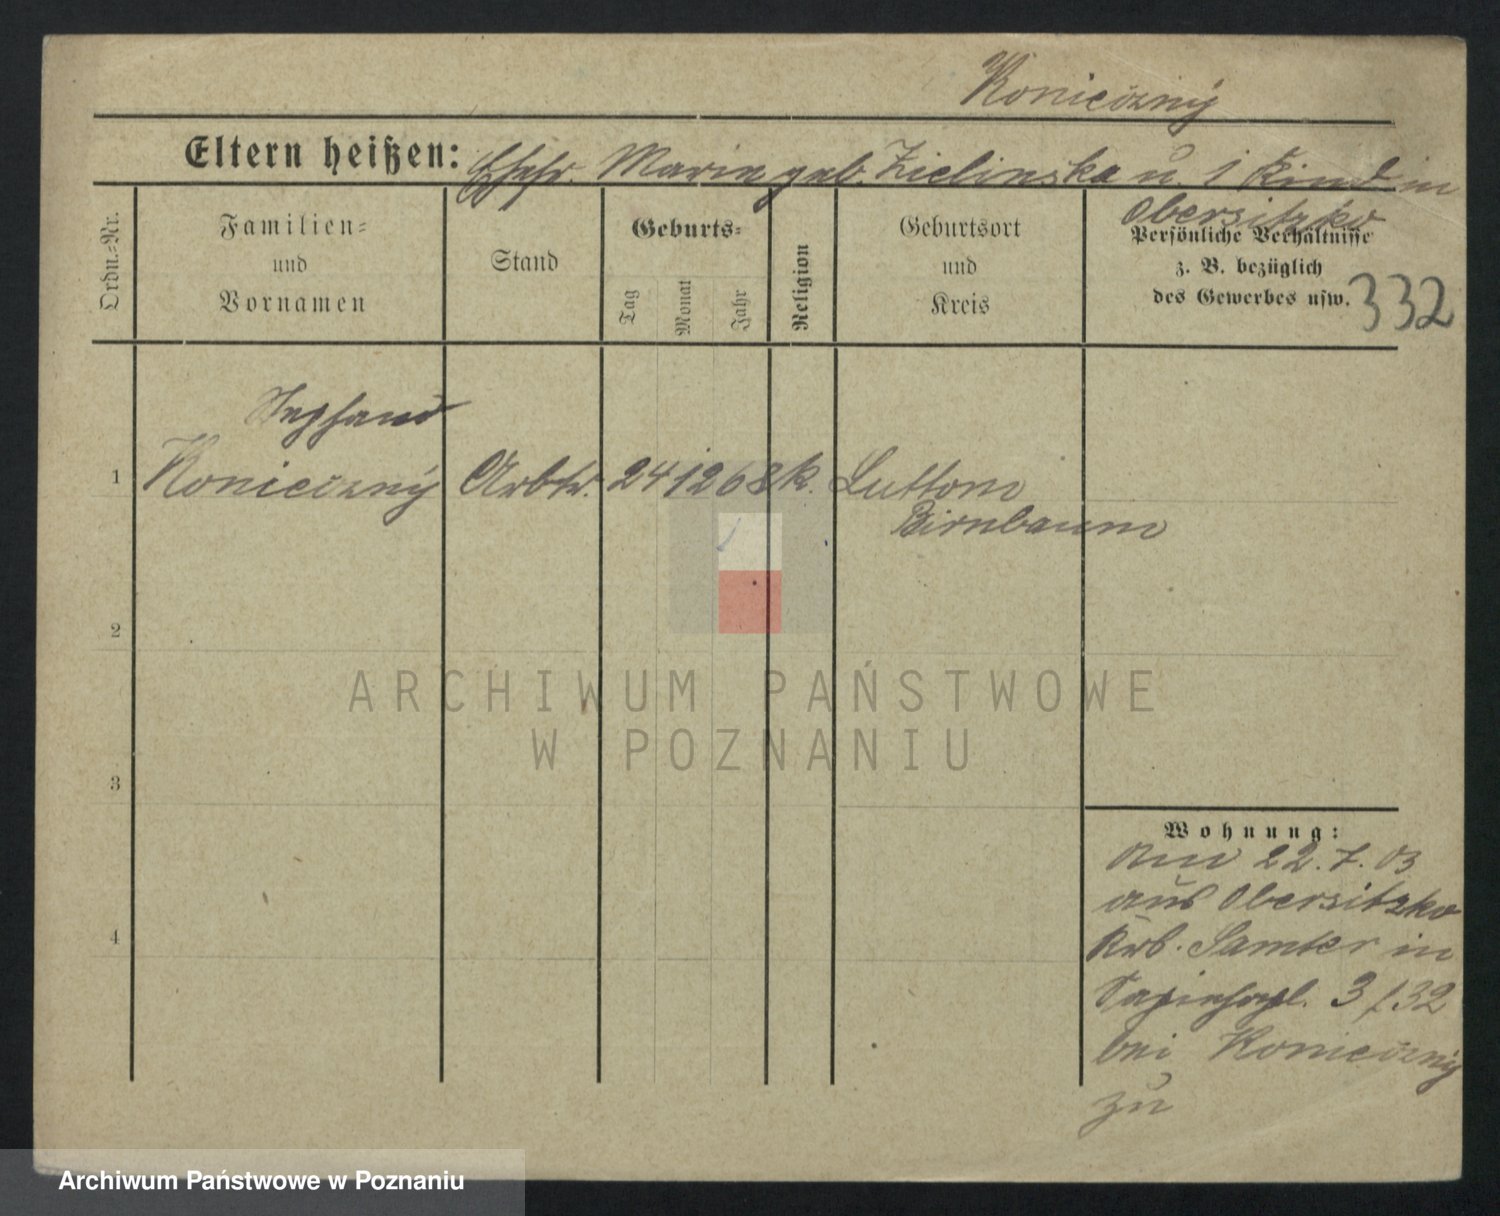 Konieczny
Eltern heißen: Ehefr. Maria geb. Zielinska u. 1 Kind in
Obersitzko
Ordn.=Nr.
Familien=
und
Vornamen
Stand
Geburts=
Tag
Monat
Jahr
Religion
Geburtsort
und
Kreis
Persönliche Verhältnisse
z. B. bezüglich
des Gewerbes usw.
332
Stephan
1 Konieczny Arbtr. 24 12 68 k. Luttom
Birnbaum
2
ARCHIWUM PAŃSTWOWE
W POZNANIU
3
4
Wohnung:
22. 7. 03
aus Obersitzko
Krb. Samter in
3 / 32
bei Konieczny
zu
Archiwum Państwowe w Poznaniu